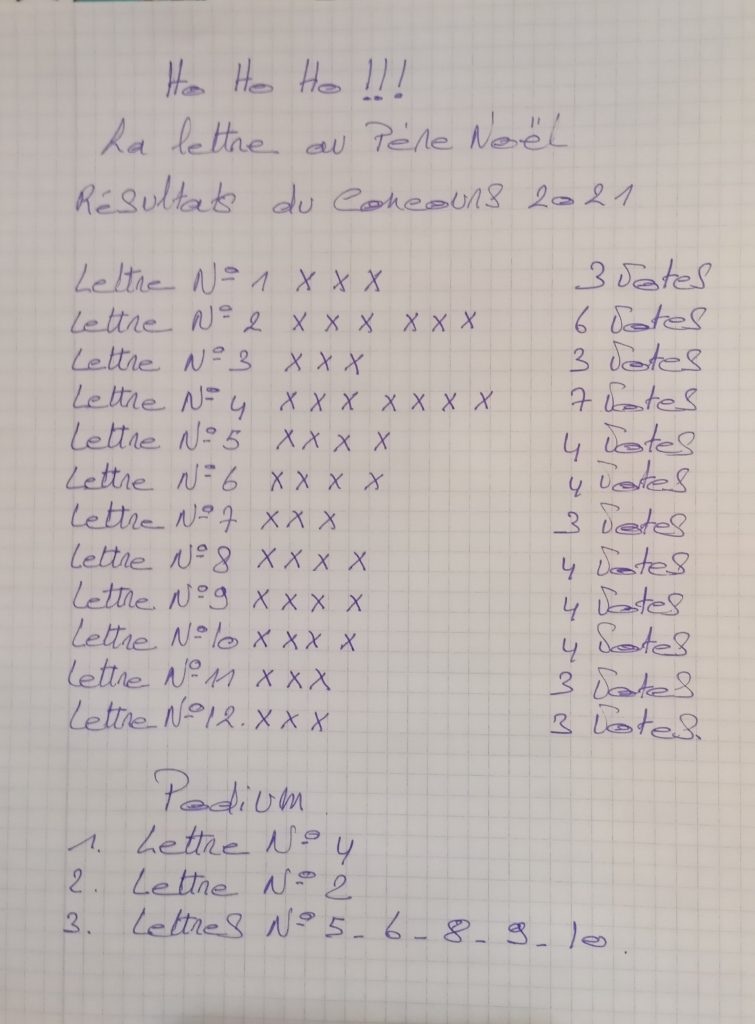 Ho Ho Ho !!!
La lettre au Père Noël
Résultats du Concours 2021
Lettre N° 1 x x x 3 Votes
Lettre N° 2 x x x x x x 6 Votes
Lettre N° 3 x x x 3 Votes
Lettre N° 4 x x x x x x x 7 Votes
Lettre N° 5 x x x x 4 Votes
Lettre N° 6 x x x x 4 Votes
Lettre N° 7 x x x 3 Votes
Lettre N° 8 x x x x 4 Votes
Lettre N° 9 x x x x 4 Votes
Lettre N° 10 x x x x 4 Votes
Lettre N° 11 x x x 3 Votes
Lettre N° 12. x x x 3 Votes.
Podium
1. Lettre N° 4
2. Lettre N° 2
3. Lettres N° 5 - 6 - 8 - 9 - 10.